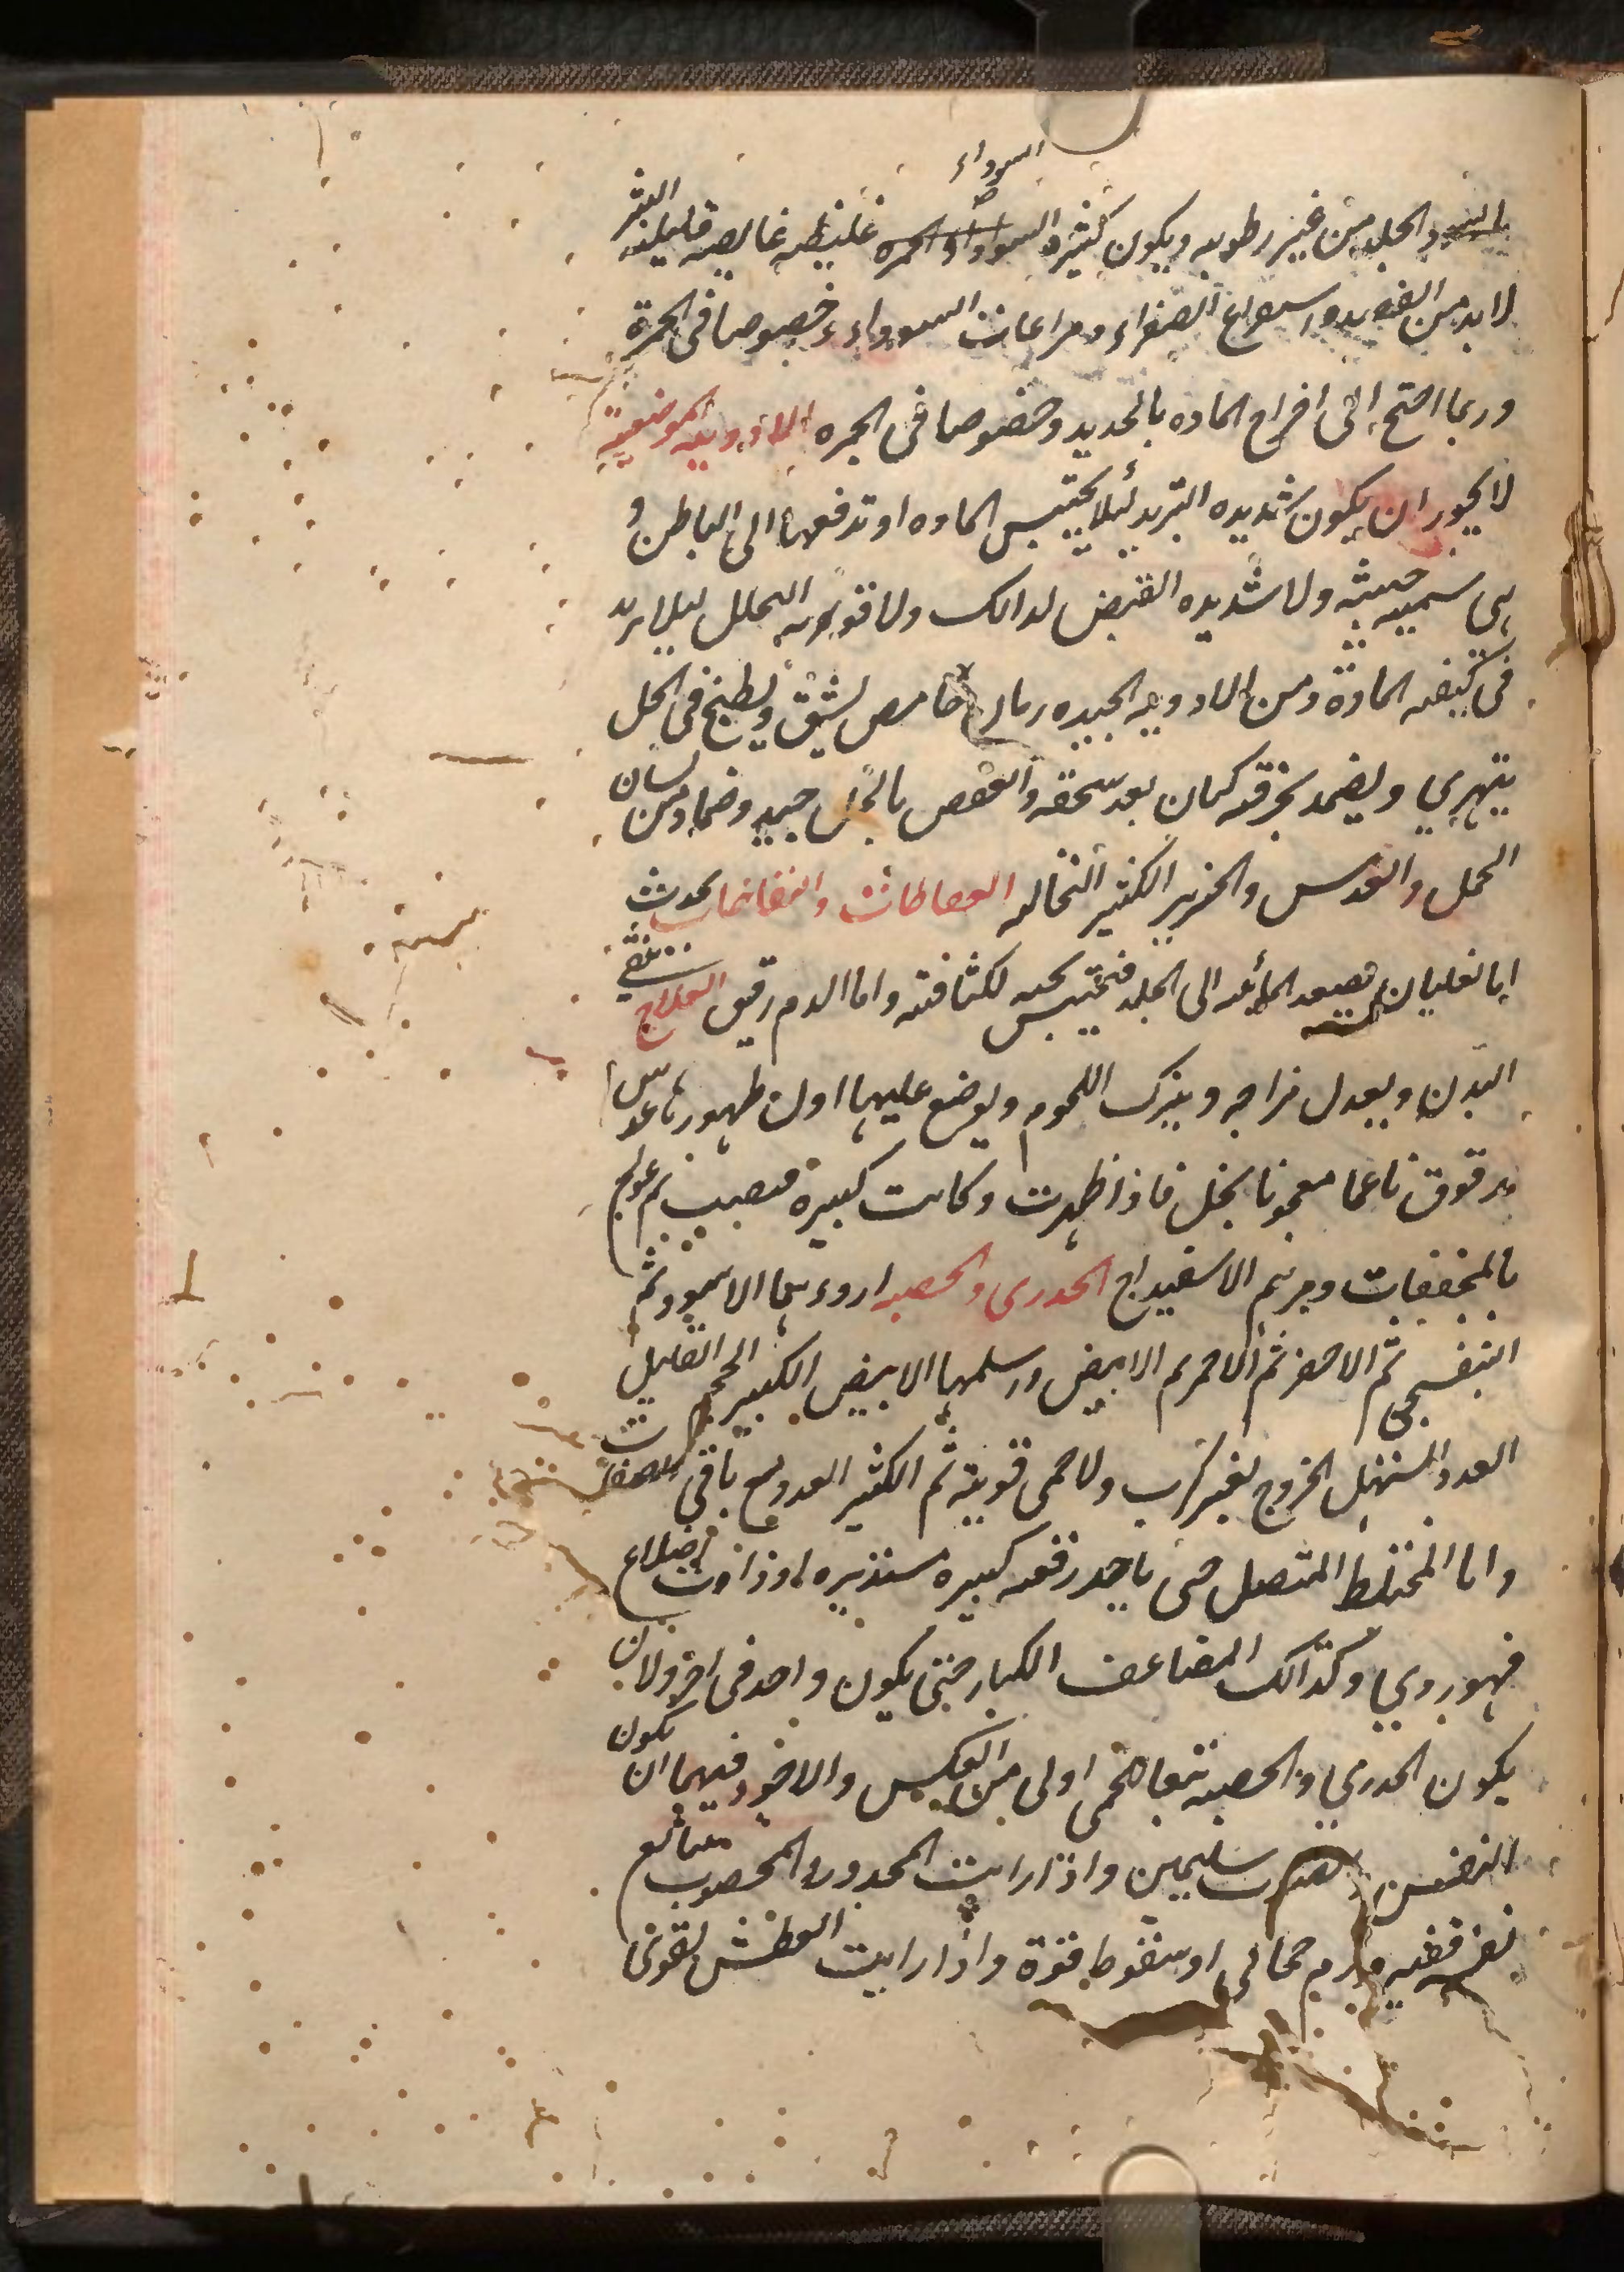 السوداء
الجلد من غير رطوبه ويكون كثيره السواد او الحمره غليظه غايصه قليلة البثر
لابد من الفصد واستفراغ الصفراء ومراعات السوداء وخصوصا فى الجمرة
وربما احتج الى اخراج الماده بالحديد وخصوصا فى الجمره الادويه الموضعية
لا يجوز ان يكون شديده التبريد لئلا يحتبس الماده او تدفعها الى الباطن و
هى سميه خبيثه ولا شديده القبض لذالك ولا قويه التحلل ليلا يزيد
فى كيفيه المادة ومن الادويه الجيده رمان حامص يشق ويطبخ فى الخل
يتهري ويضمد بخرقه كتان بعد سحقه والعفص بالخل جيد وضماد من لسان
الحمل والعدس والخبز الكثير النخاله النفاطات والنفاخات يحدث
اما لغليان تصعد المائيه الى الجلد فتحتبس تحته لكثافته واما الدم رقيق العلاج تنقي
البدن ويعدل مزاجه ويترك اللحوم ويوضع عليها اول ظهورها عدس
مدقوق ناعما معجونا بخل فاذا ظهرت وكانت كبيرة فصبب ثم عولج
بالمجففات ومرهم الاسفيداج الجدرى والحصبه اردءهما الاسود ثم
البنفسجى ثم الاصفر ثم الاحمر ثم الابيض واسلمها الابيض الكبير الحجم القليل
العدد السهل الخروج بغير كرب ولا حمى قوية ثم الكثير العدد مع باقى الصفات
واما المختلط المتصل حتى ياخد رقعه كبيره مستديره او ذات اضلاع
فهو ردي وكذالك المضاعف الكبار حتى يكون واحد فى اخر ولان
يكون الجدري والحصبه تتبعا لحمى اولى من العكس والاجود فيهما ان يكون
النفس سليمين واذا رايت المجدور والمحصوب تتابع
نفسه فهو ورم حجابى او سقوط قوة واذا رايت العطش يقوى